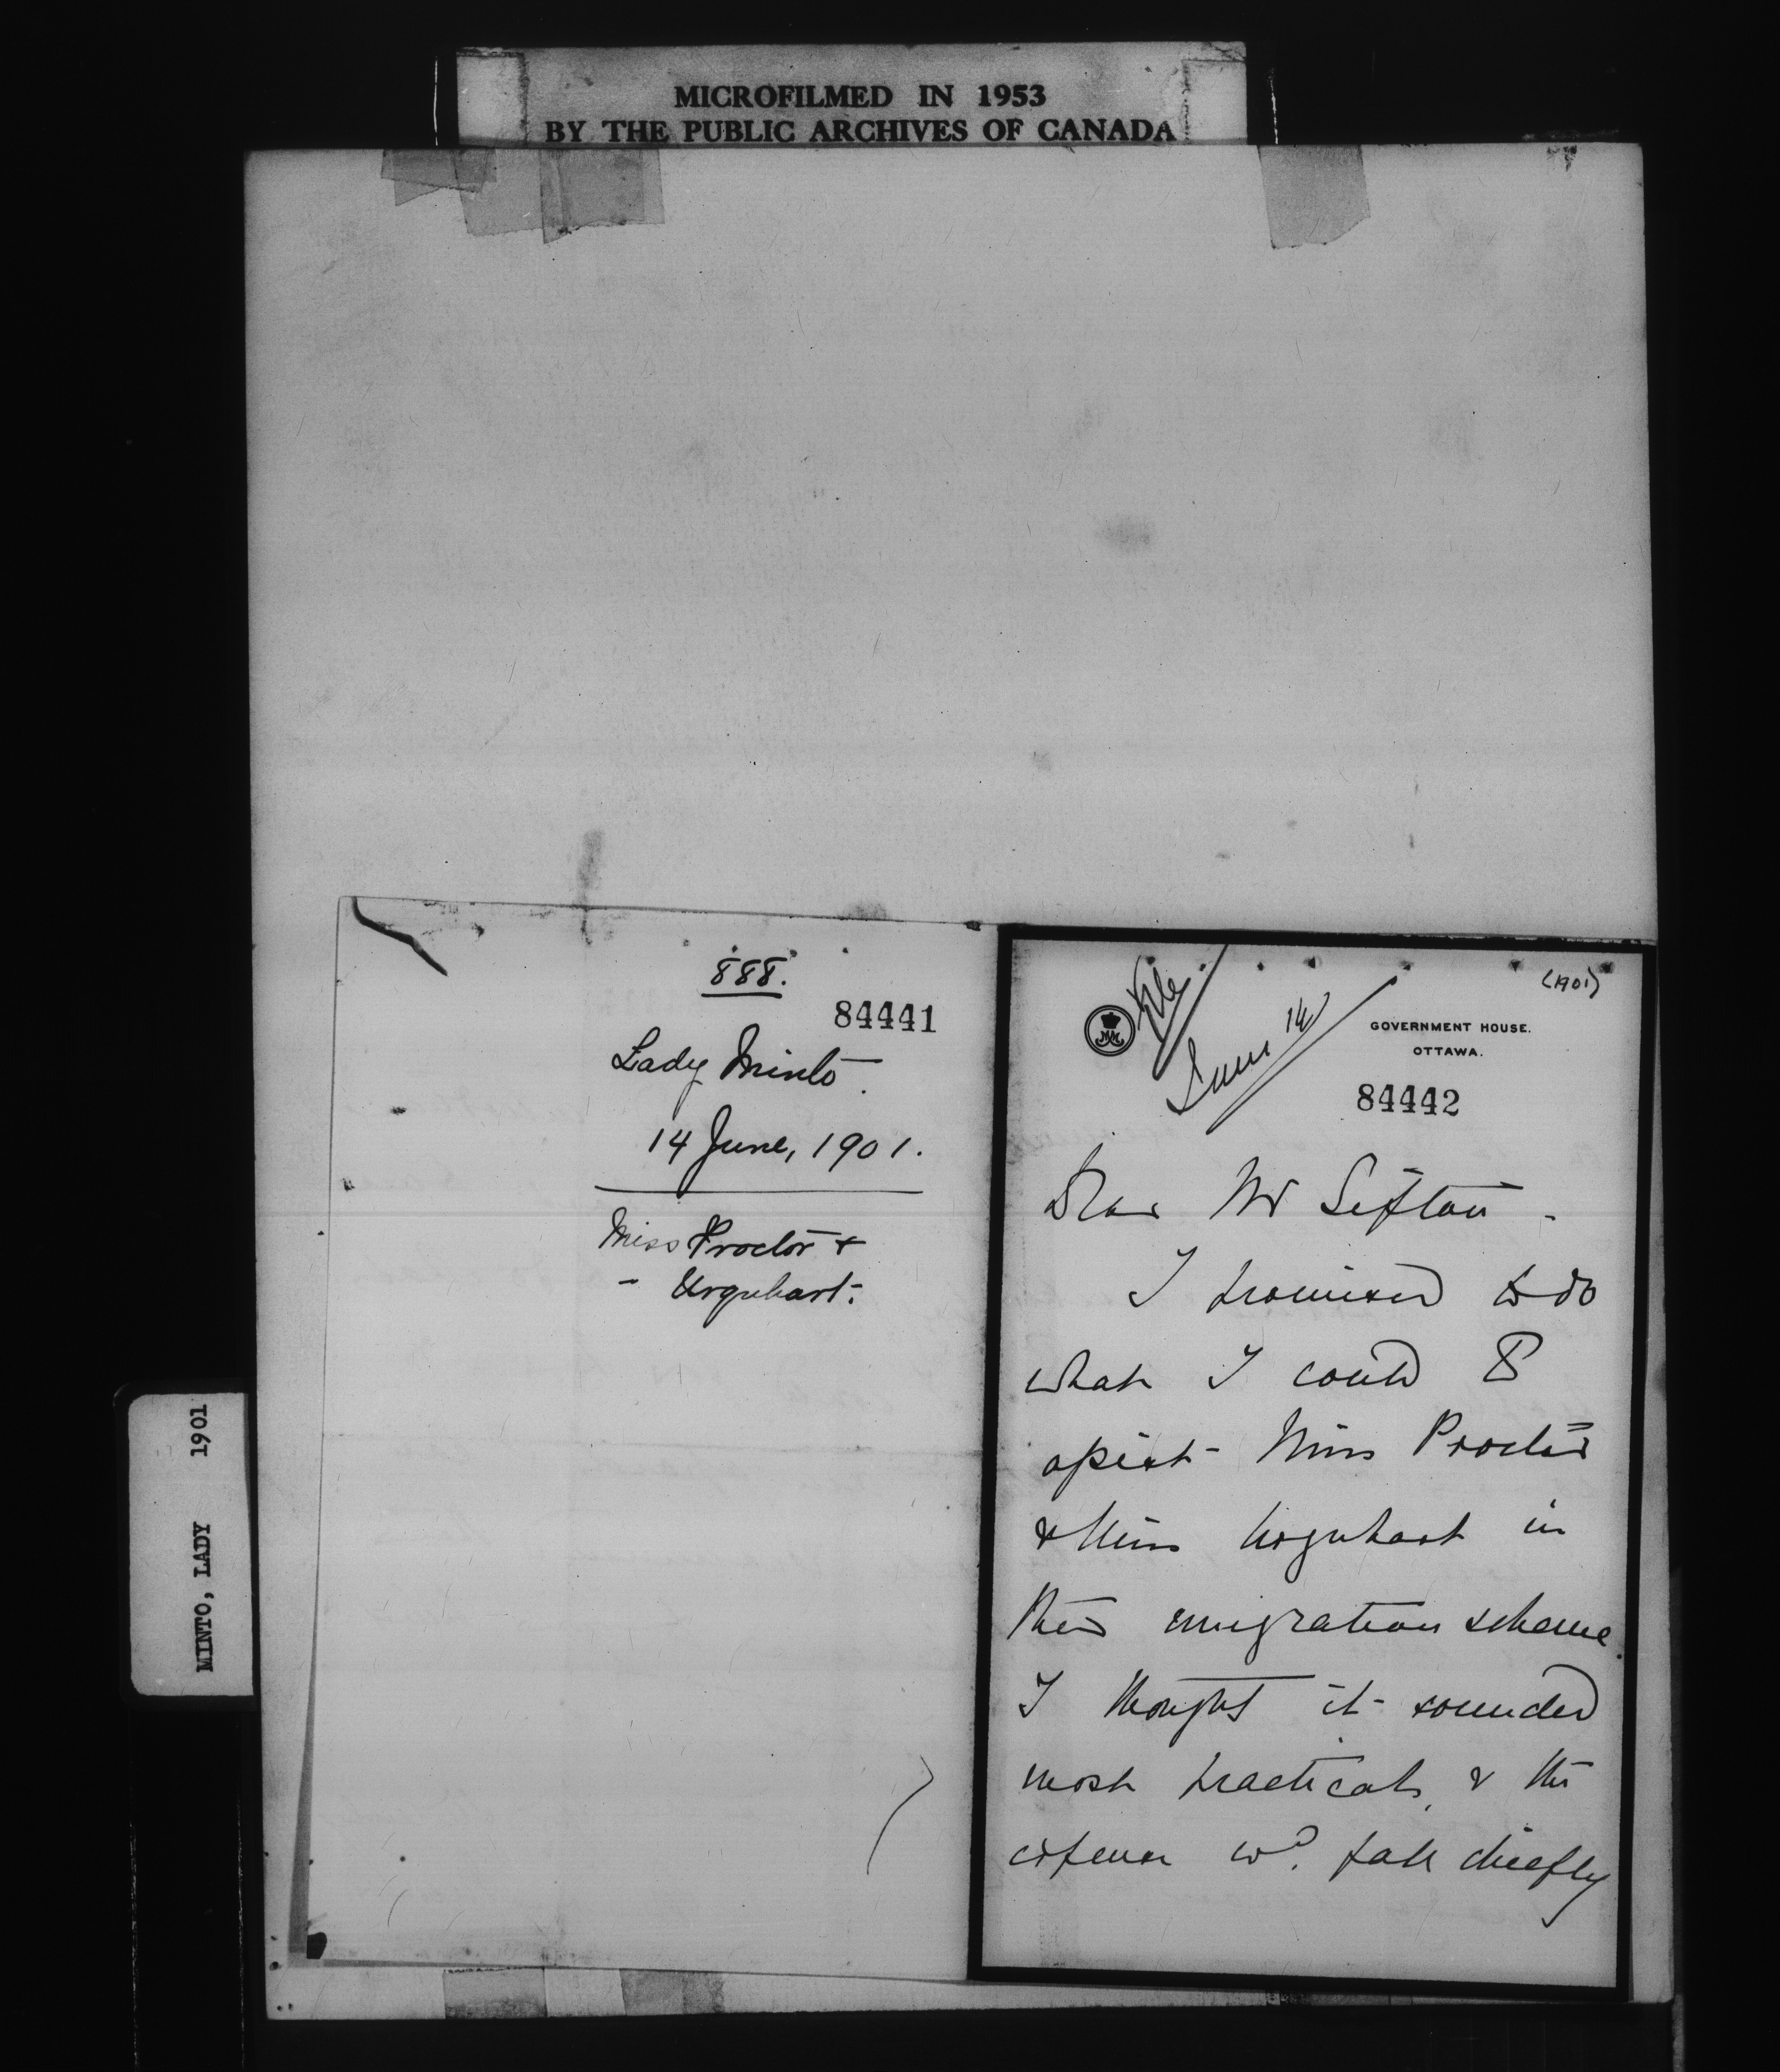 MICROFILMED IN 1953
BY THE PUBLIC ARCHIVES OF CANADA
MINTO, LADY 1901
888.
84441
Lady Minto.
14 June, 1901.
Miss Proctor &
- Urquhart.
(1901)
File
June 14
GOVERNMENT HOUSE.
OTTAWA.
84442
Dear Mr Sifton -
I promised to do
what I could to
assist Miss Proctor
& Miss Urquhart in
their emigration scheme.
I thought it sounded
most practical, & the
expense wd. fall chiefly